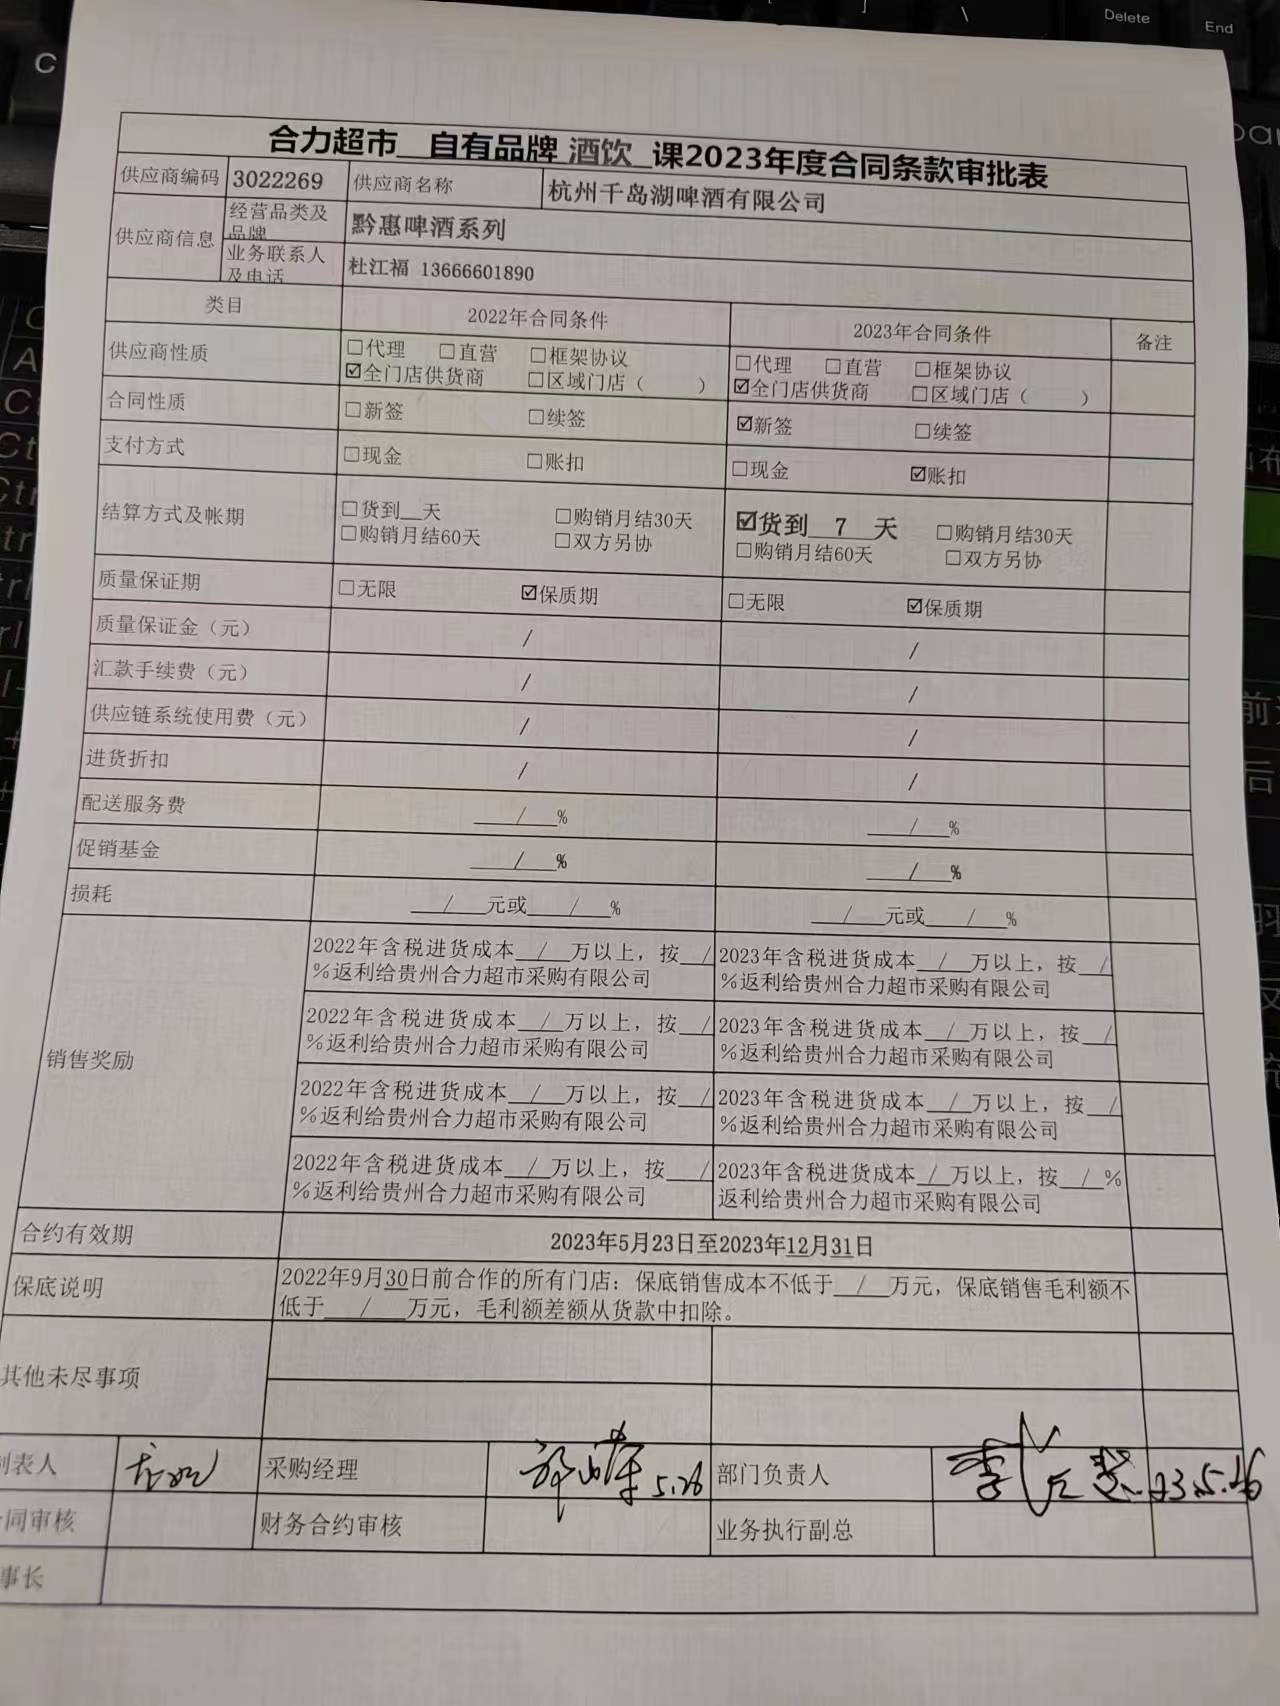 Delete
End
合力超市__自有品牌 酒饮__课2023年度合同条款审批表
供应商编码 3022269 供应商名称 杭州千岛湖啤酒有限公司
供应商信息 经营品类及品牌 黔惠啤酒系列
业务联系人及电话 杜江福 13666601890
类目 2022年合同条件 2023年合同条件 备注
供应商性质
□代理 □直营 □框架协议
☑全门店供货商 □区域门店（ ）
□代理 □直营 □框架协议
☑全门店供货商 □区域门店（ ）
合同性质 □新签 □续签 ☑新签 □续签
支付方式 □现金 □账扣 □现金 ☑账扣
结算方式及帐期
□货到__天 □购销月结30天
□购销月结60天 □双方另协
☑货到__7__天 □购销月结30天
□购销月结60天 □双方另协
质量保证期 □无限 ☑保质期 □无限 ☑保质期
质量保证金（元） / /
汇款手续费（元） / /
供应链系统使用费（元） / /
进货折扣 / /
配送服务费 __/__% __/__%
促销基金 __/__% __/__%
损耗 __/__元或__/__% __/__元或__/__%
销售奖励
2022年含税进货成本__/__万以上，按__/
%返利给贵州合力超市采购有限公司
2023年含税进货成本__/__万以上，按__/
%返利给贵州合力超市采购有限公司
2022年含税进货成本__/__万以上，按__/
%返利给贵州合力超市采购有限公司
2023年含税进货成本__/__万以上，按__/
%返利给贵州合力超市采购有限公司
2022年含税进货成本__/__万以上，按__/
%返利给贵州合力超市采购有限公司
2023年含税进货成本__/__万以上，按__/
%返利给贵州合力超市采购有限公司
2022年含税进货成本__/__万以上，按__/
%返利给贵州合力超市采购有限公司
2023年含税进货成本__/__万以上，按__/__%
返利给贵州合力超市采购有限公司
合约有效期 2023年5月23日至2023年12月31日
保底说明
2022年9月30日前合作的所有门店：保底销售成本不低于__/__万元，保底销售毛利额不
低于__/__万元，毛利额差额从货款中扣除。
其他未尽事项
制表人 采购经理 5.26 部门负责人 23.5.26
合同审核 财务合约审核 业务执行副总
事长